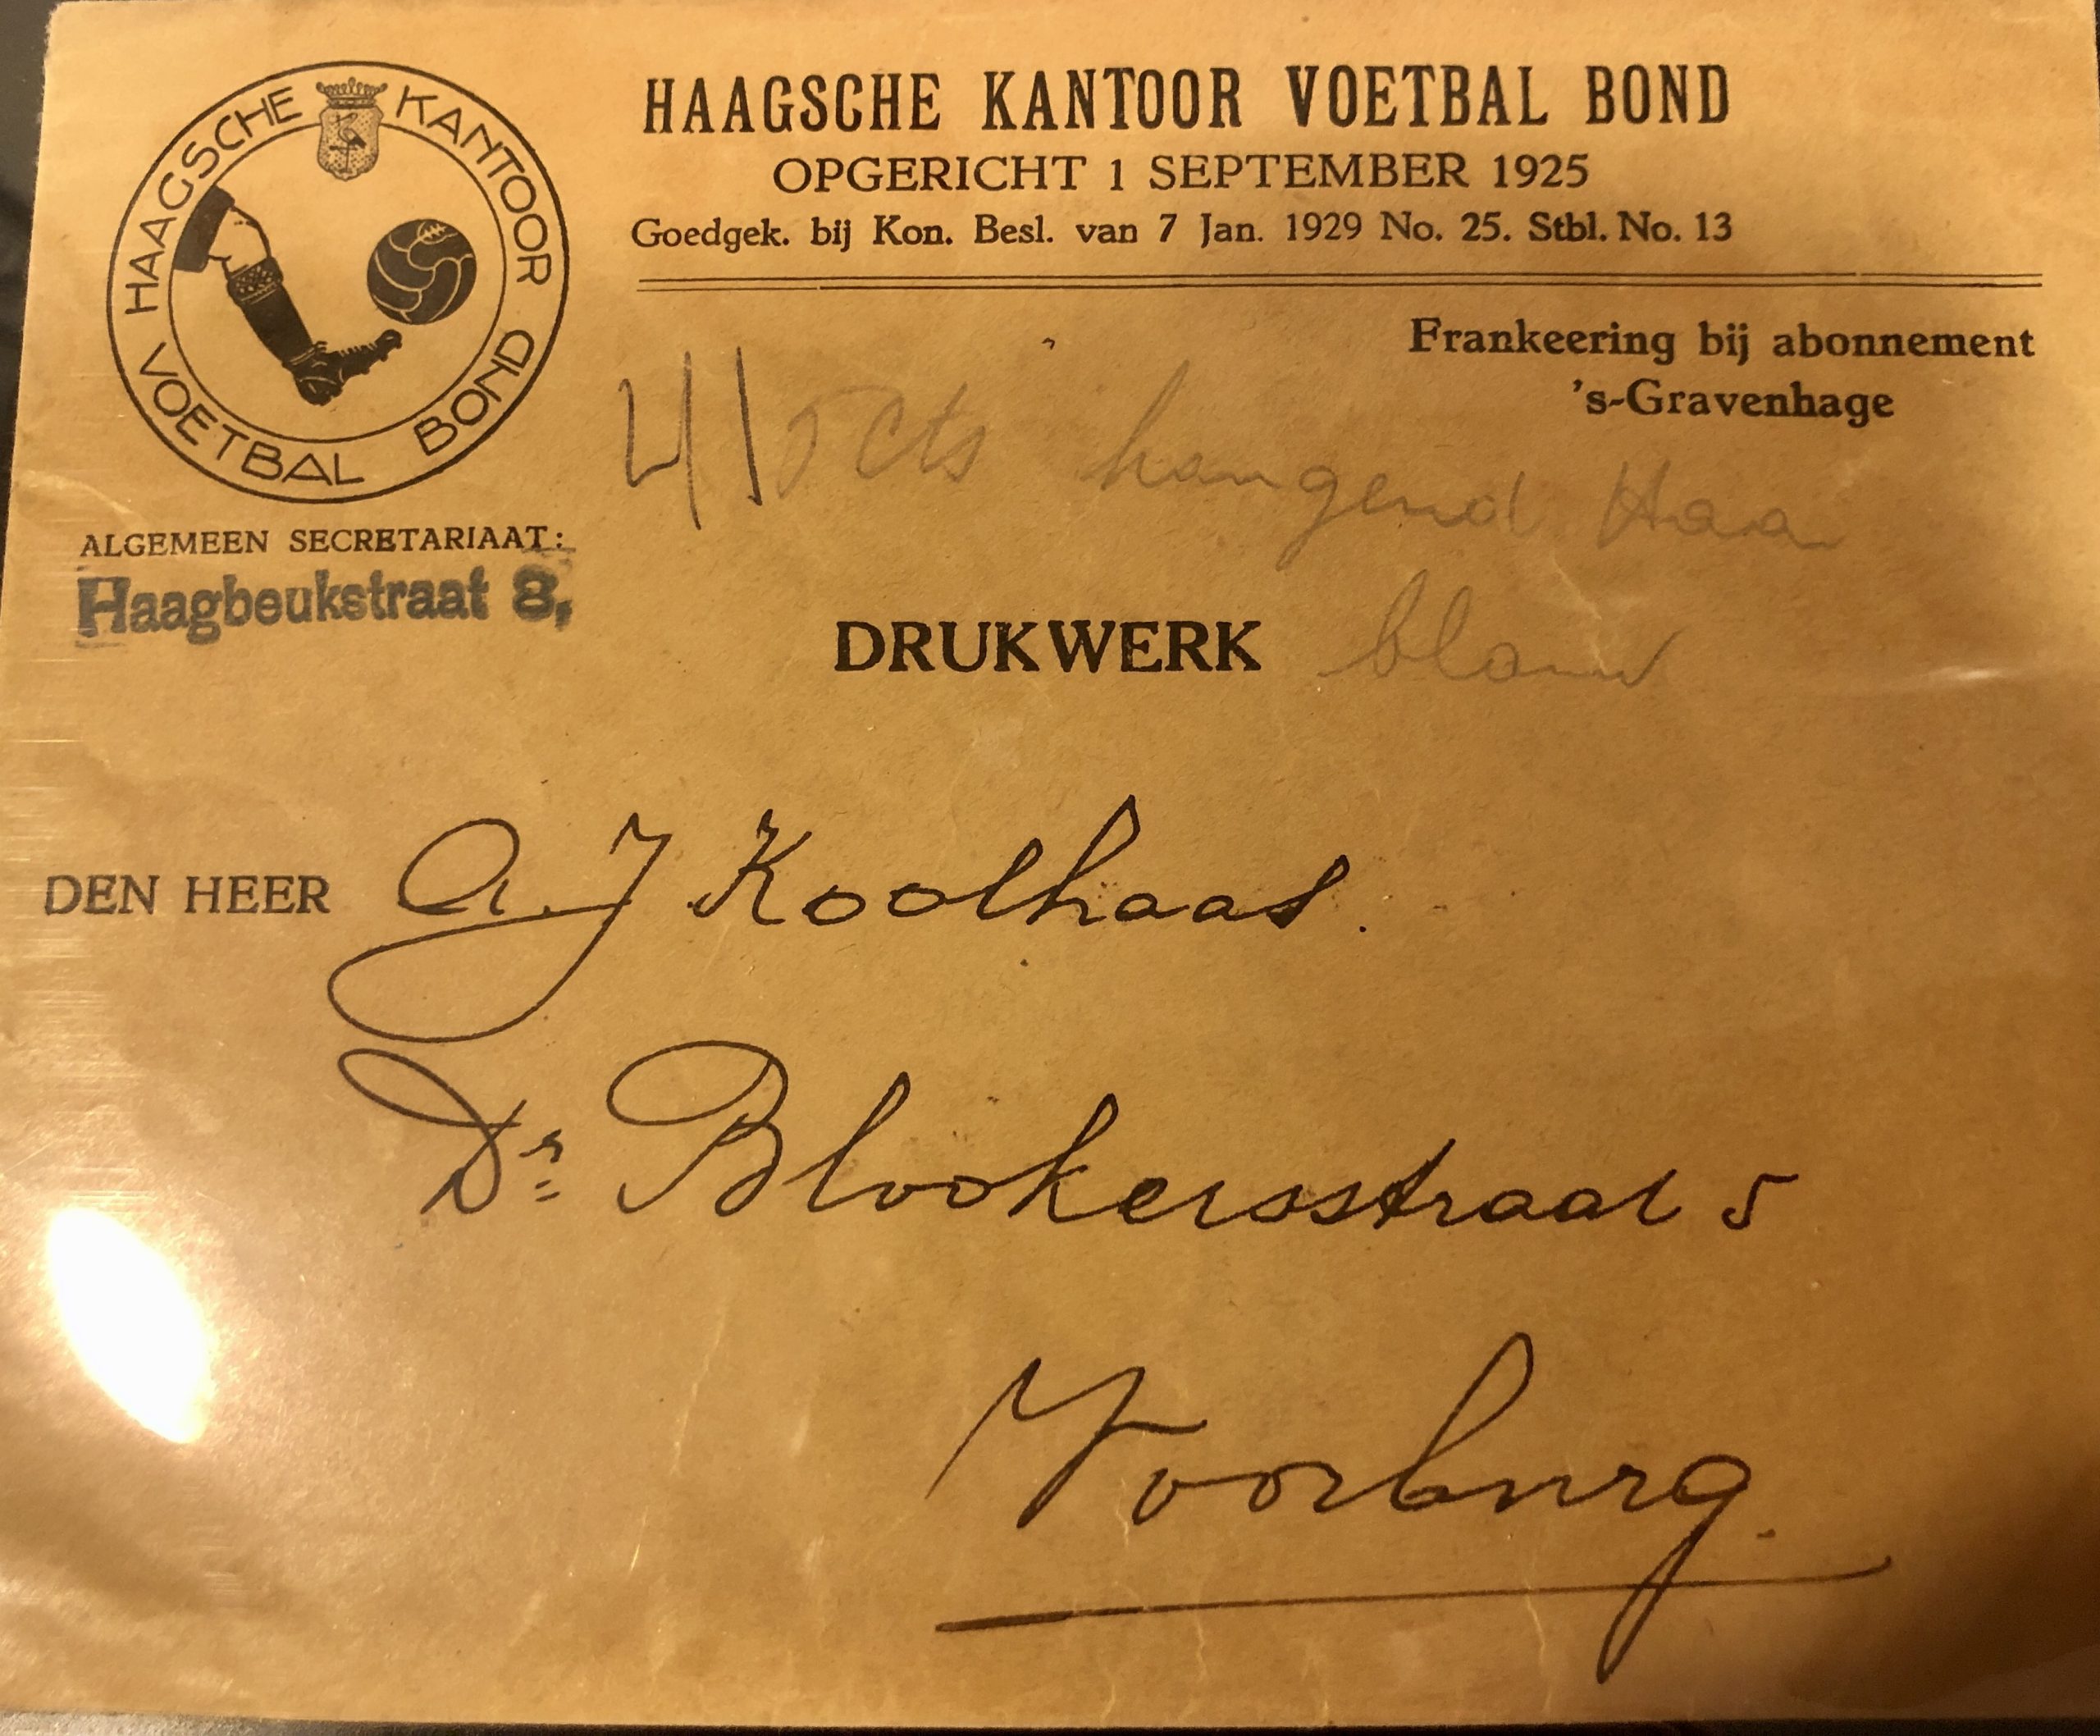 HAAGSCHE KANTOOR VOETBAL BOND
HAAGSCHE KANTOOR VOETBAL BOND
OPGERICHT 1 SEPTEMBER 1925
Goedgek. bij Kon. Besl. van 7 Jan. 1929 No. 25. Stbl. No. 13
Frankeering bij abonnement
's-Gravenhage
cts hangend Haa
ALGEMEEN SECRETARIAAT:
Haagbeukstraat 8,
DRUKWERK blauw
DEN HEER A. J Koolhaas.
Dr Blookersstraat 5
Voorburg.